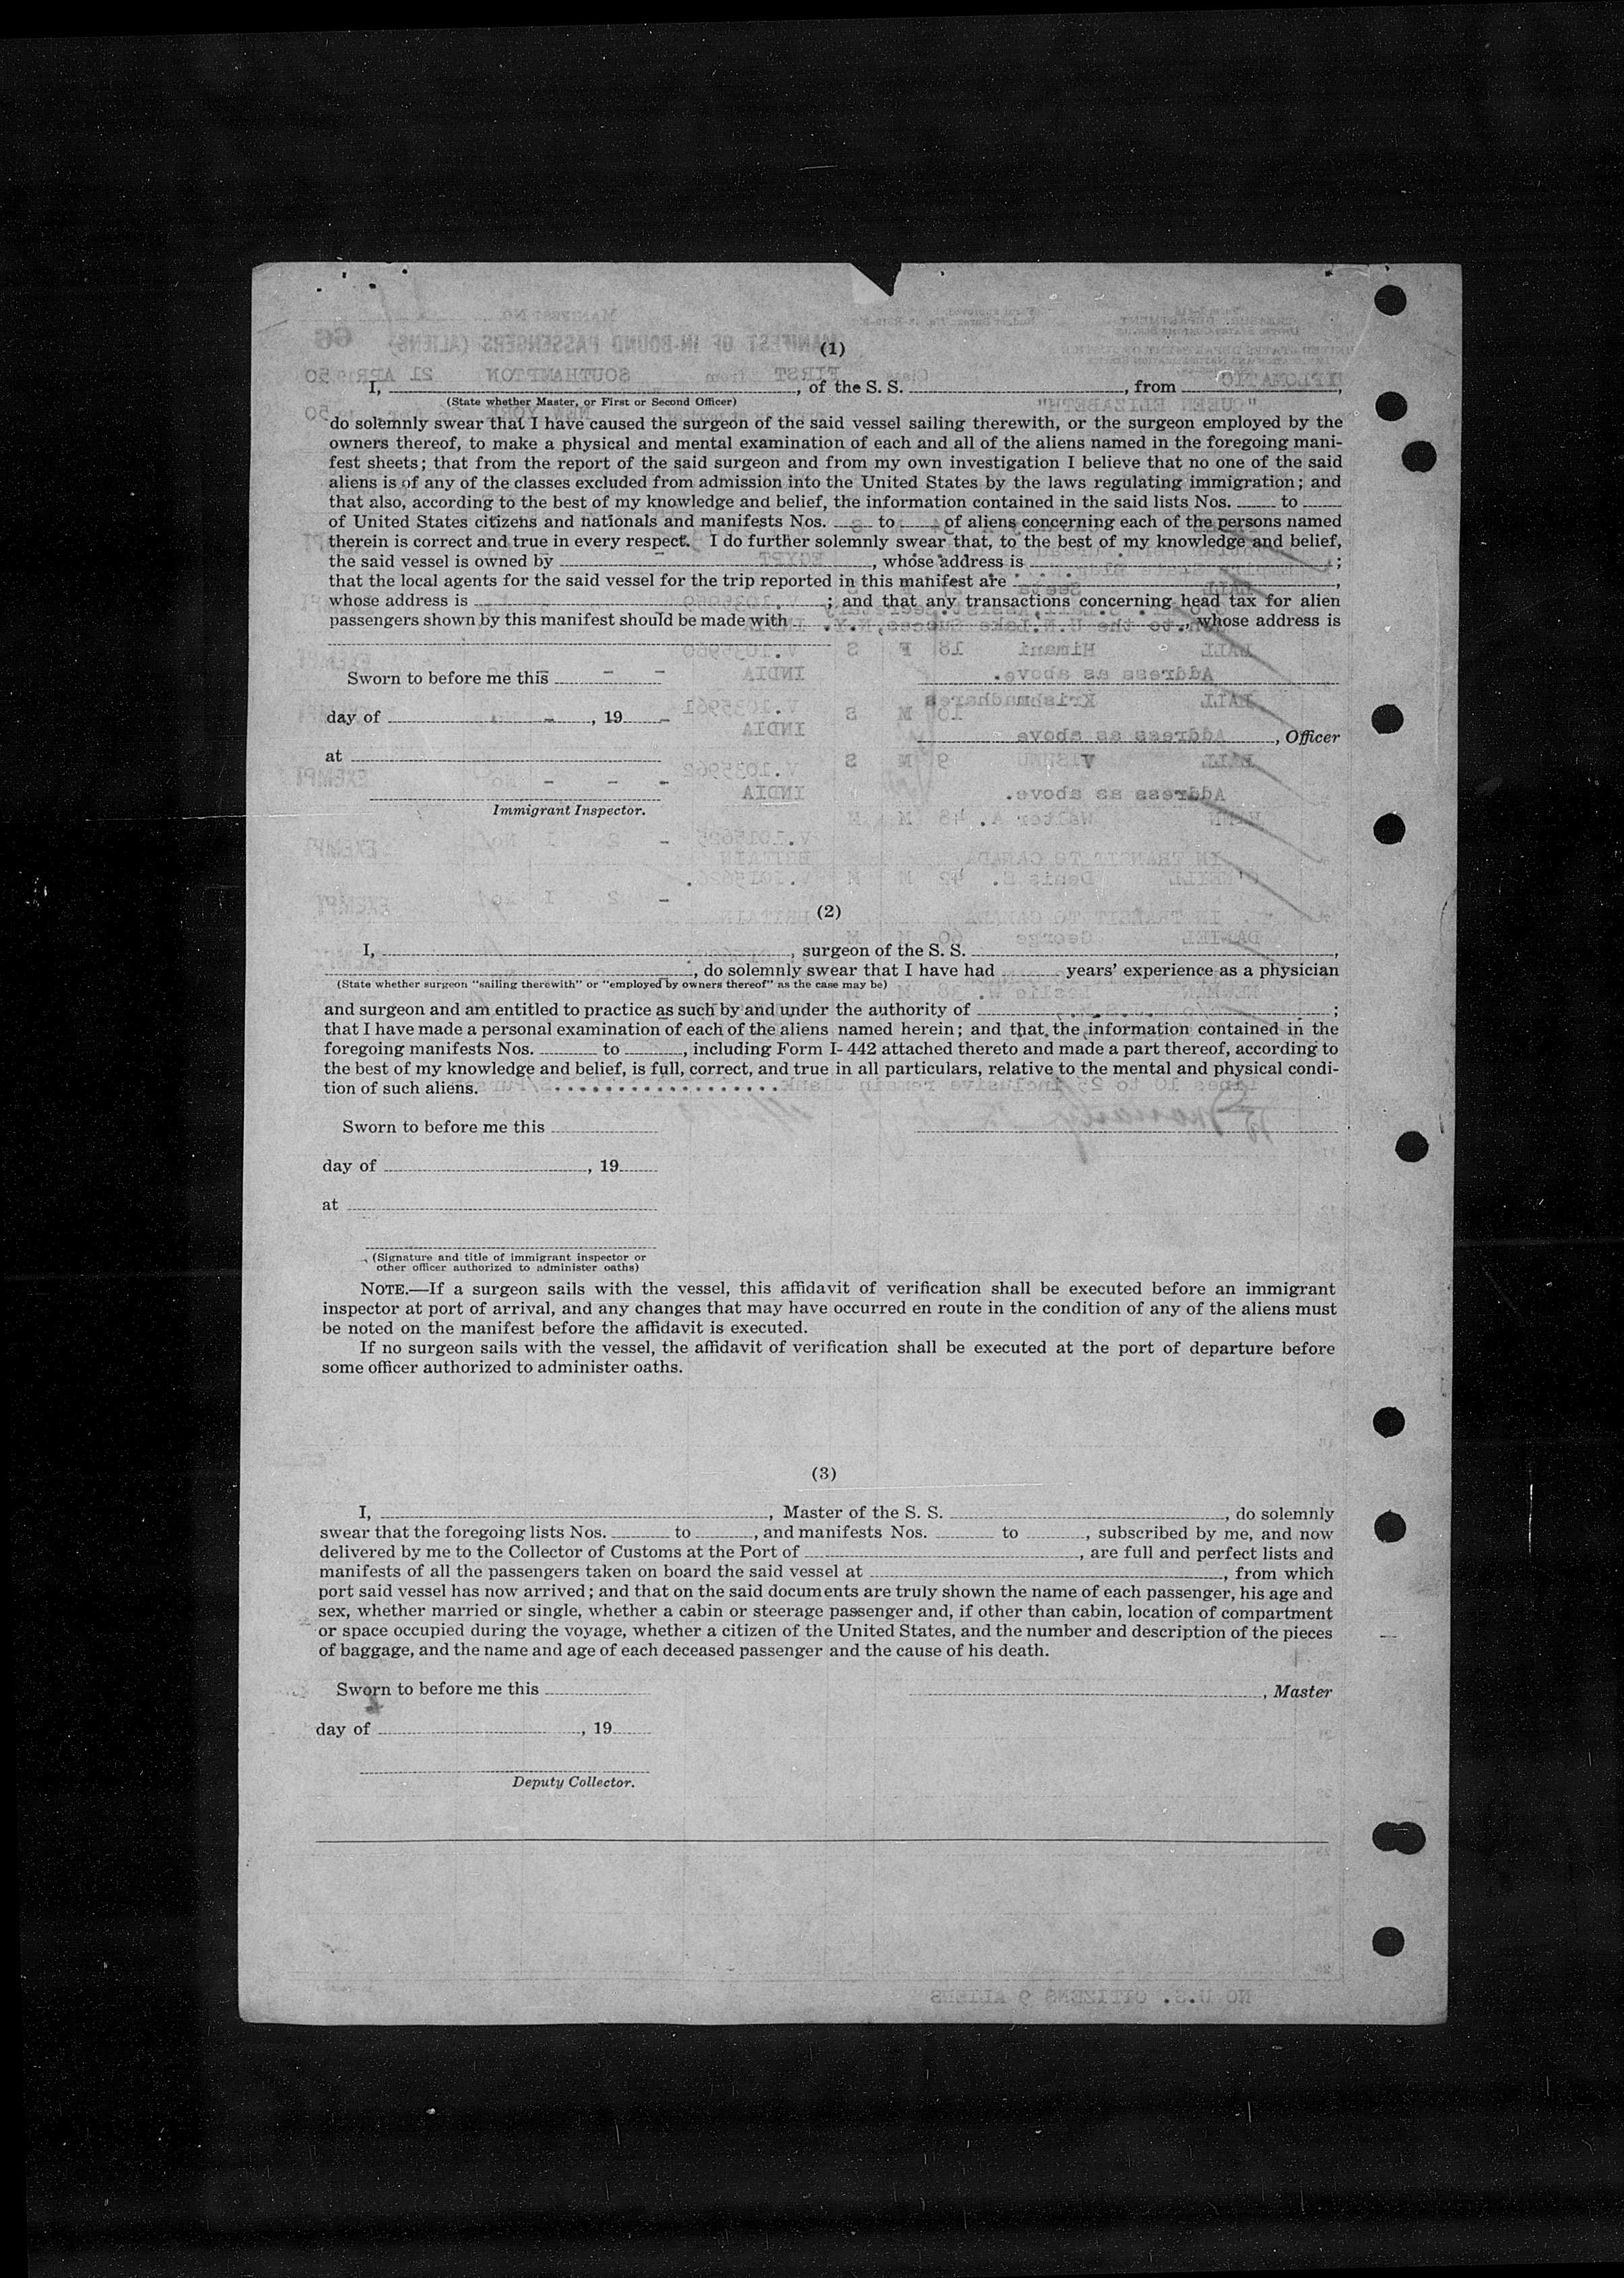 (1)
I, , of the S. S. , from ,
(State whether Master, or First or Second Officer)
do solemnly swear that I have caused the surgeon of the said vessel sailing therewith, or the surgeon employed by the
owners thereof, to make a physical and mental examination of each and all of the aliens named in the foregoing mani-
fest sheets; that from the report of the said surgeon and from my own investigation I believe that no one of the said
aliens is of any of the classes excluded from admission into the United States by the laws regulating immigration; and
that also, according to the best of my knowledge and belief, the information contained in the said lists Nos. to
of United States citizens and nationals and manifests Nos. to of aliens concerning each of the persons named
therein is correct and true in every respect. I do further solemnly swear that, to the best of my knowledge and belief,
the said vessel is owned by , whose address is ;
that the local agents for the said vessel for the trip reported in this manifest are ,
whose address is ; and that any transactions concerning head tax for alien
passengers shown by this manifest should be made with , whose address is
Sworn to before me this
day of , 19
, Officer
at
Immigrant Inspector.
(2)
I, , surgeon of the S. S. ,
, do solemnly swear that I have had years' experience as a physician
(State whether surgeon "sailing therewith" or "employed by owners thereof" as the case may be)
and surgeon and am entitled to practice as such by and under the authority of ;
that I have made a personal examination of each of the aliens named herein; and that the information contained in the
foregoing manifests Nos. to , including Form I-442 attached thereto and made a part thereof, according to
the best of my knowledge and belief, is full, correct, and true in all particulars, relative to the mental and physical condi-
tion of such aliens.
Sworn to before me this
day of , 19
at
(Signature and title of immigrant inspector or
other officer authorized to administer oaths)
NOTE.—If a surgeon sails with the vessel, this affidavit of verification shall be executed before an immigrant
inspector at port of arrival, and any changes that may have occurred en route in the condition of any of the aliens must
be noted on the manifest before the affidavit is executed.
If no surgeon sails with the vessel, the affidavit of verification shall be executed at the port of departure before
some officer authorized to administer oaths.
(3)
I, , Master of the S. S. , do solemnly
swear that the foregoing lists Nos. to , and manifests Nos. to , subscribed by me, and now
delivered by me to the Collector of Customs at the Port of , are full and perfect lists and
manifests of all the passengers taken on board the said vessel at , from which
port said vessel has now arrived; and that on the said documents are truly shown the name of each passenger, his age and
sex, whether married or single, whether a cabin or steerage passenger and, if other than cabin, location of compartment
or space occupied during the voyage, whether a citizen of the United States, and the number and description of the pieces
of baggage, and the name and age of each deceased passenger and the cause of his death.
Sworn to before me this
, Master
day of , 19
Deputy Collector.